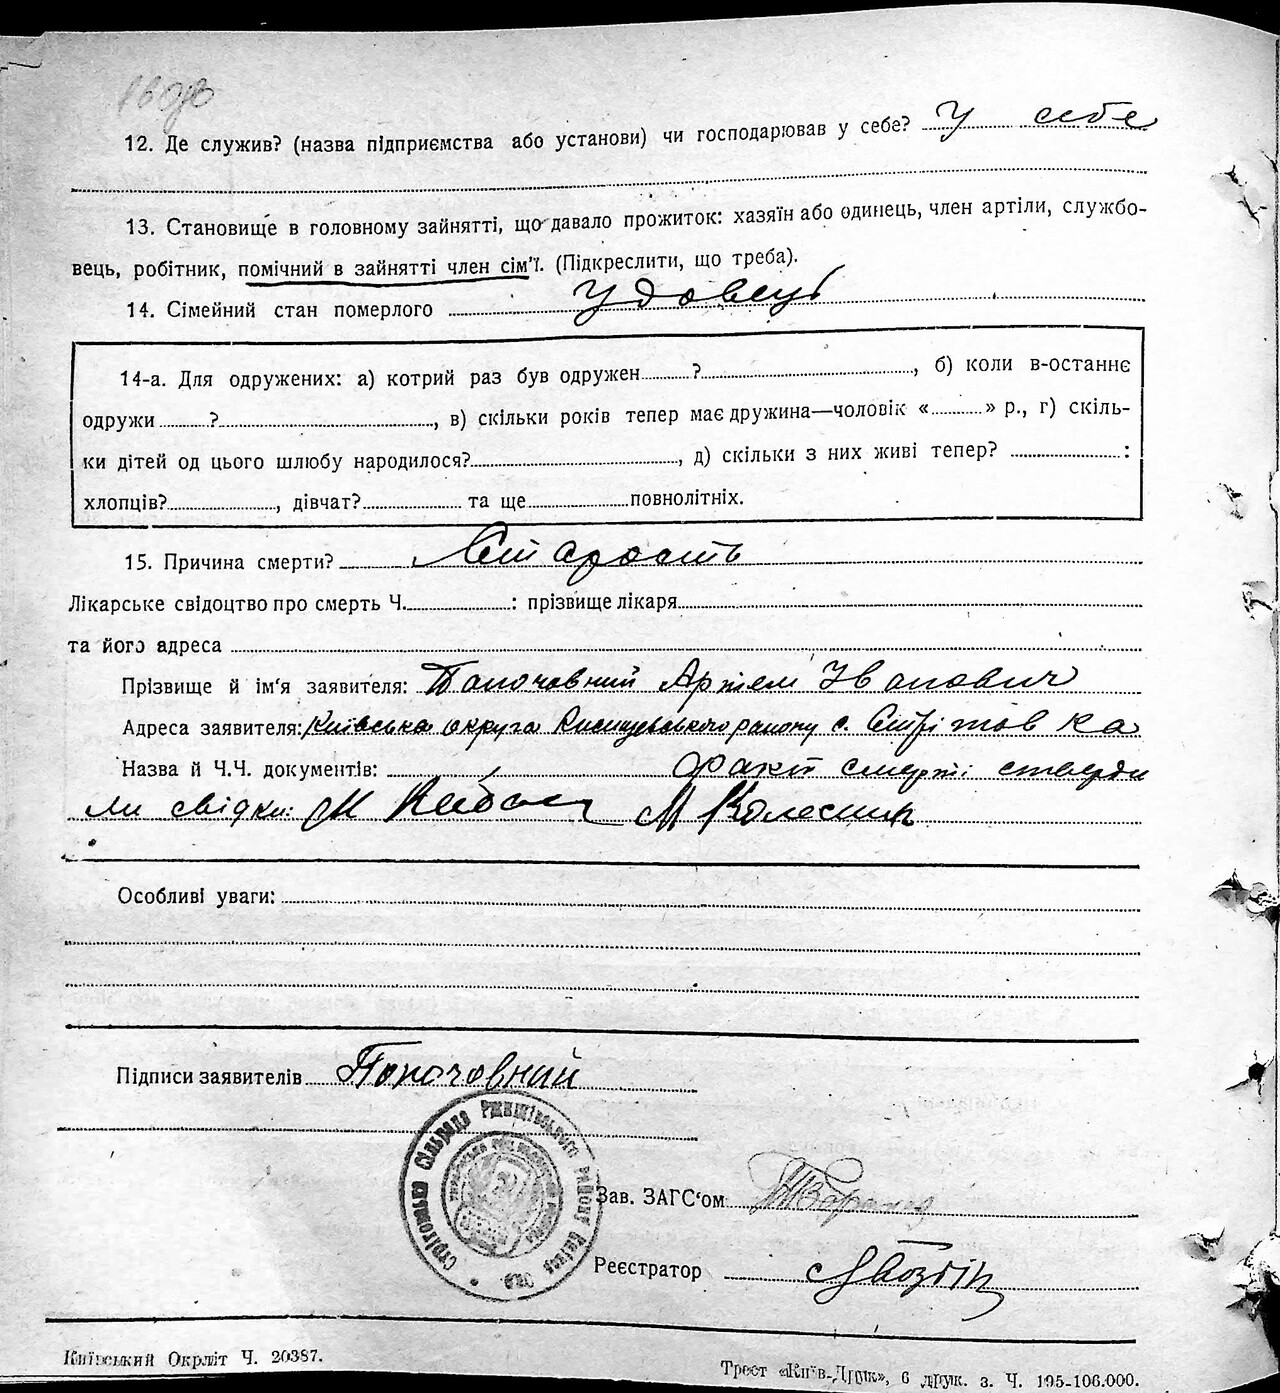 12. Де служив? (назва підприємства або установи) чи господарював у себе? у себе
13. Становище в головному зайнятті, що давало прожиток: хазяїн або одинець, член артіли, службо-
вець, робітник, помічний в зайнятті член сім'ї. (Підкреслити, що треба).
14. Сімейний стан померлого удовець
14-а. Для одружених: а) котрий раз був одружен ? , б) коли в-останнє
одружи ? , в) скільки років тепер має дружина—чоловік « » р., г) скіль-
ки дітей од цього шлюбу народилося? , д) скільки з них живі тепер? :
хлопців? , дівчат? та ще повнолітніх.
15. Причина смерти? Старость
Лікарське свідоцтво про смерть Ч. : прізвище лікаря
та його адреса
Прізвище й ім'я заявителя: Артем Іванович
Адреса заявителя: Київська округа району с. Стрітовка
Назва й Ч.Ч. документів: факт смерті ствердили
свідки: М М Колесник
Особливі уваги:
Підписи заявителів
Стрітовська сільрада Ржищівського району Київськ. окр.
Зав. ЗАГС'ом
Реєстратор
Київський Окрліт Ч. 20387.
Трест «Київ-Друк», 6 друк. з. Ч. 195-106.000.